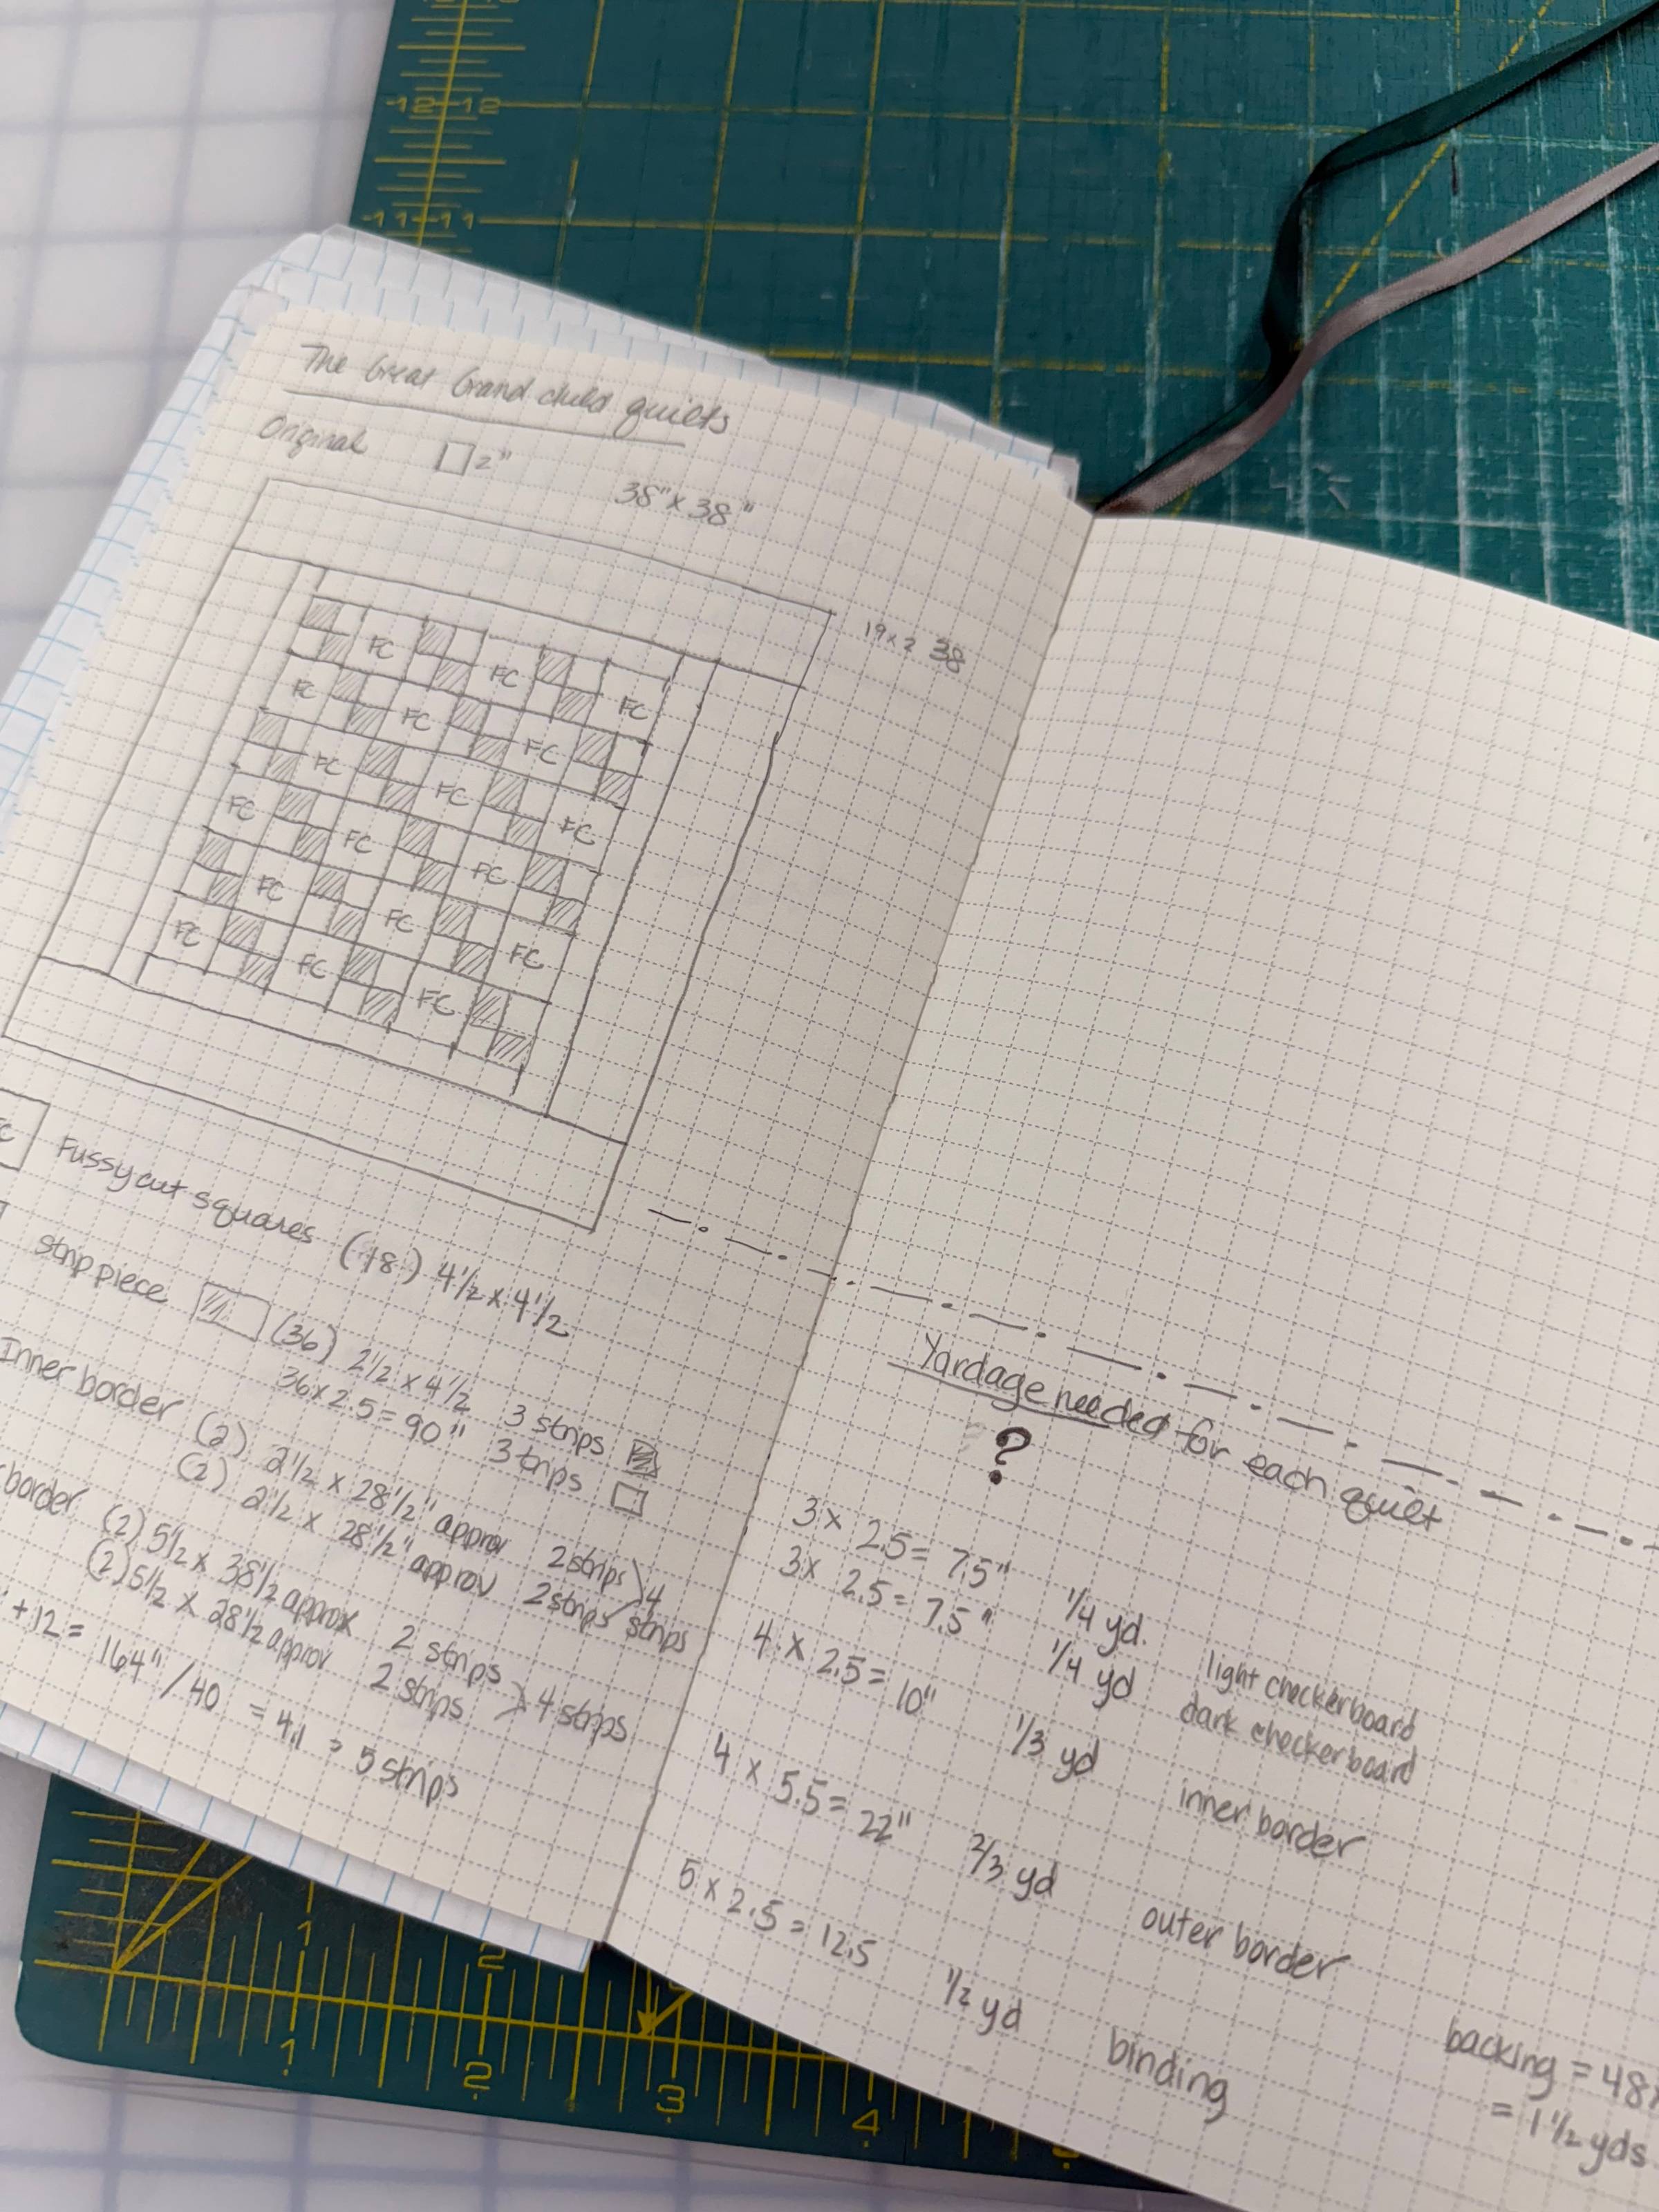 -12-12
-11-11
The Great Grand child quilts
Original □ 2"
38" x 38"
19x2 38
FC FC FC
FC FC FC
FC FC FC
FC FC FC
FC FC FC
FC FC FC
Fussy cut squares (18) 4 1/2 x 4 1/2
strip piece (36) 2 1/2 x 4 1/2 3 strips
36 x 2.5 = 90" 3 trips
Inner border (2) 2 1/2 x 28 1/2" approv 2 strips
(2) 2 1/2 x 28 1/2" approv 2 strips 4 strips
border (2) 5 1/2 x 38 1/2 approx 2 strips
(2) 5 1/2 x 28 1/2 approv 2 strips 4 strips
+12 = 164" / 40 = 4.1 → 5 strips
Yardage needed for each quilt
?
3 x 2.5 = 7.5" 1/4 yd. light checkerboard
3x 2.5 = 7.5" 1/4 yd dark checkerboard
4 x 2.5 = 10" 1/3 yd inner border
4 x 5.5 = 22" 2/3 yd outer border
5 x 2.5 = 12.5 1/2 yd binding
backing = 48
= 1 1/2 yds
1 2
1 2 3 4